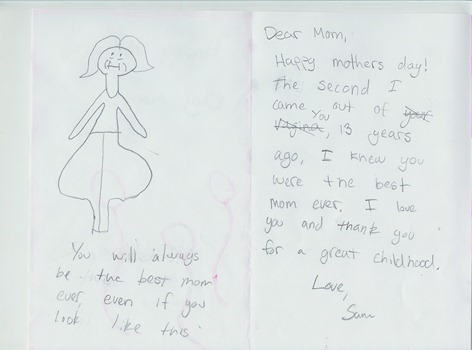 You will always
be the best mom
ever even if you
look like this
Dear Mom,
Happy mothers day!
The second I
came out of your
vagina You, 13 years
ago, I knew you
were the best
mom ever. I love
you and thank you
for a great childhood.
Love,
Sam